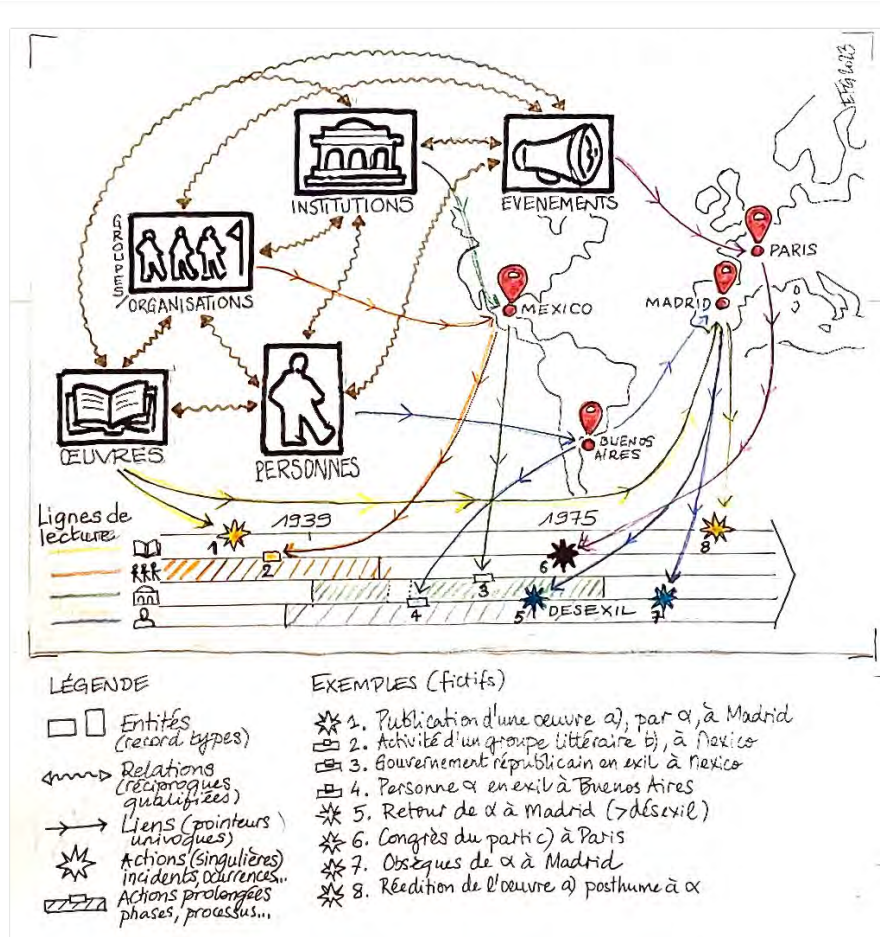 EFG 2023
INSTITUTIONS
EVENEMENTS
GROUPES/
ORGANISATIONS
PARIS
MEXICO
MADRID
BUENOS
AIRES
ŒUVRES
PERSONNES
Lignes de
lecture
1939
1975
1
2
3
4
5
6
7
8
DESEXIL
LÉGENDE
Entités
(record types)
Relations
(réciproques
qualifiées)
Liens (pointeurs
univoques)
Actions (singulières)
incidents, ocurrences...
Actions prolongées
phases, processus...
EXEMPLES (fictifs)
1. Publication d'une œuvre a), par α, à Madrid
2. Activité d'un groupe littéraire b), à Mexico
3. Gouvernement républicain en exil à Mexico
4. Personne α en exil à Buenos Aires
5. Retour de α à Madrid (>désexil)
6. Congrès du parti c) à Paris
7. Obsèques de α à Madrid
8. Réedition de l'œuvre a) posthume à α